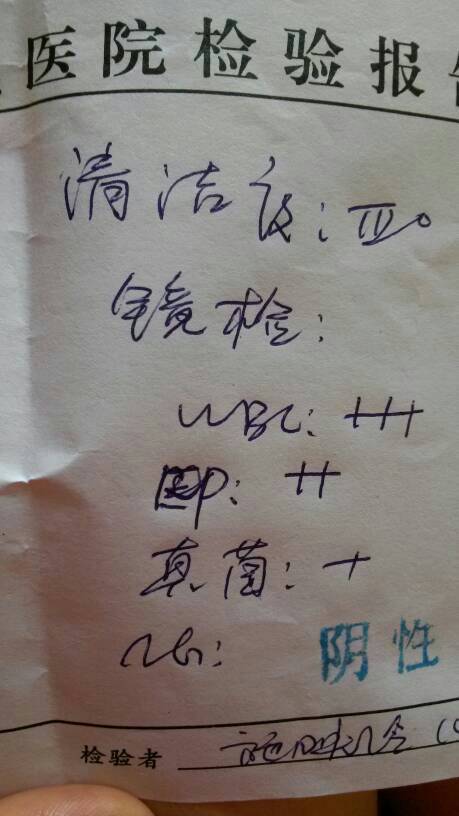 医院检验报告
清洁度：Ⅲ°
镜检：
WBC：+++
EP：++
真菌：+
NG：阴性
检验者